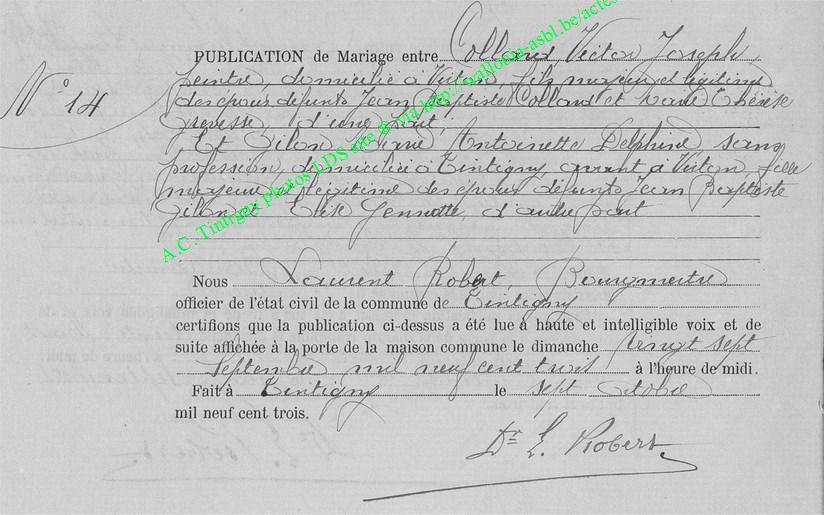 N° 14
PUBLICATION de Mariage entre Collard Victor Joseph
peintre, domicilié à Virton, fils majeur et légitime
des époux défunts Jean Baptiste Collard et Marie Thérèse
d'une part,
Et Gilon Marie Antoinette Delphine, sans
profession, domiciliée à Tintigny, avant à Virton, fille
majeure et légitime des époux défunts Jean Baptiste
Gilon et Elise d'autre part
Nous Laurent Robert, Bourgmestre
officier de l'état civil de la commune de Tintigny
certifions que la publication ci-dessus a été lue à haute et intelligible voix et de
suite affichée à la porte de la maison commune le dimanche vingt sept
Septembre mil neuf cent trois à l'heure de midi.
Fait à Tintigny le sept Octobre
mil neuf cent trois.
Dr L. Robert
A.C. Tintigny photos LDS site & via http://wallonia-asbl.be/actes